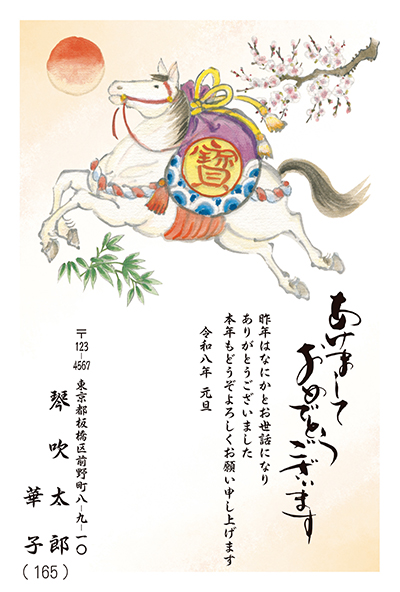 寳
あけまして
おめでとう
ございます
昨年はなにかとお世話になり
ありがとうございました
本年もどうぞよろしくお願い申し上げます
令和八年 元旦
〒123-4567
東京都板橋区前野町八-九-一〇
琴吹太郎
華子
(165)